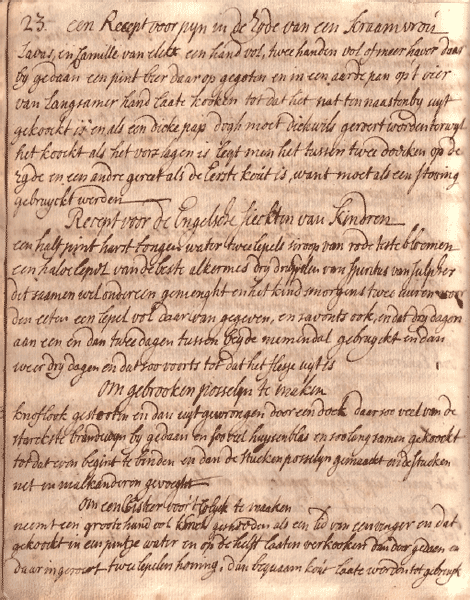 23. een Recept voor pyn in de Zyde van een Kraamvrou
Savas, en Camille van elckx een hand vol, twee handen vol of meer haver daar
by gedaan een pint bier daar op gegoten en in een aarde pan op't vier
van Langsamer hand laate kooken tot dat het nat ten naasten by uyt
gekoockt is en als een dicke pap dogh moet dickwils geroert worden terwyl
het koockt als het verslagen is legt men het tussen twee doecken op de
Zyde en een andre gereet als de Eerste kout is, want moet als een stoving
gebruyckt werden
Recept voor de Engelsche sieckten van Kindren
een half pint hart tongen water twee lepels siroop van rode bloemen
een halve lepel van de beste alkermes dry druppelen van spiritus van sulpher
dit saamen wel onder een gemenght en het kind smorgens twee uuren voor
den eeten een lepel vol daar van gegeven, en savonts ook, en dat dry dagen
aan een en dan twee dagen tussen beyde niemendal gebruyckt en dan
weer dry dagen en dat soo voorts tot dat het flesje uyt is
Om gebrooken posselyn te maken
knoflook gestooten en dan uyt gewrongen door een doek daar soo veel van de
starckste brandewyn by gedaan en soo viel huysenblas en soo lang samen gekoockt
tot dat even begint te binden en dan de stucken posselyn gemaackt en de stucken
net en malkanderen gevoeght
Om een Clister voor't Colyk te maaken
neemt een groote hand ook gesneeden als een lid van een vinger en dat
gekoockt in een pintje water en op de helft laaten verkooken dan door gedaan en
daar in geroert twee lepelen honing, dan bequaam kout laate worden tot gebruyk